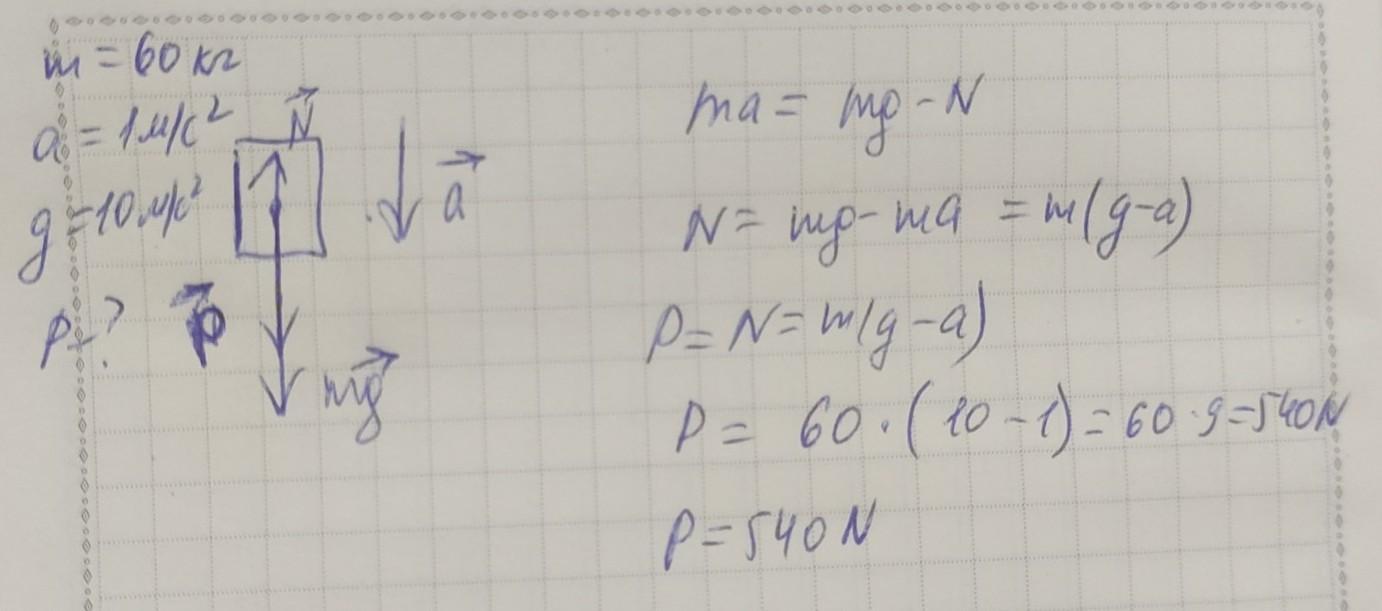 m = 60 кг
a = 1 м/с²
g = 10 м/с²
P - ?
N⃗
a⃗
P⃗
mg⃗
ma = mg - N
N = mg - ma = m(g-a)
P = N = m(g-a)
P = 60 · (10 - 1) = 60 · 9 = 540 N
P = 540 N